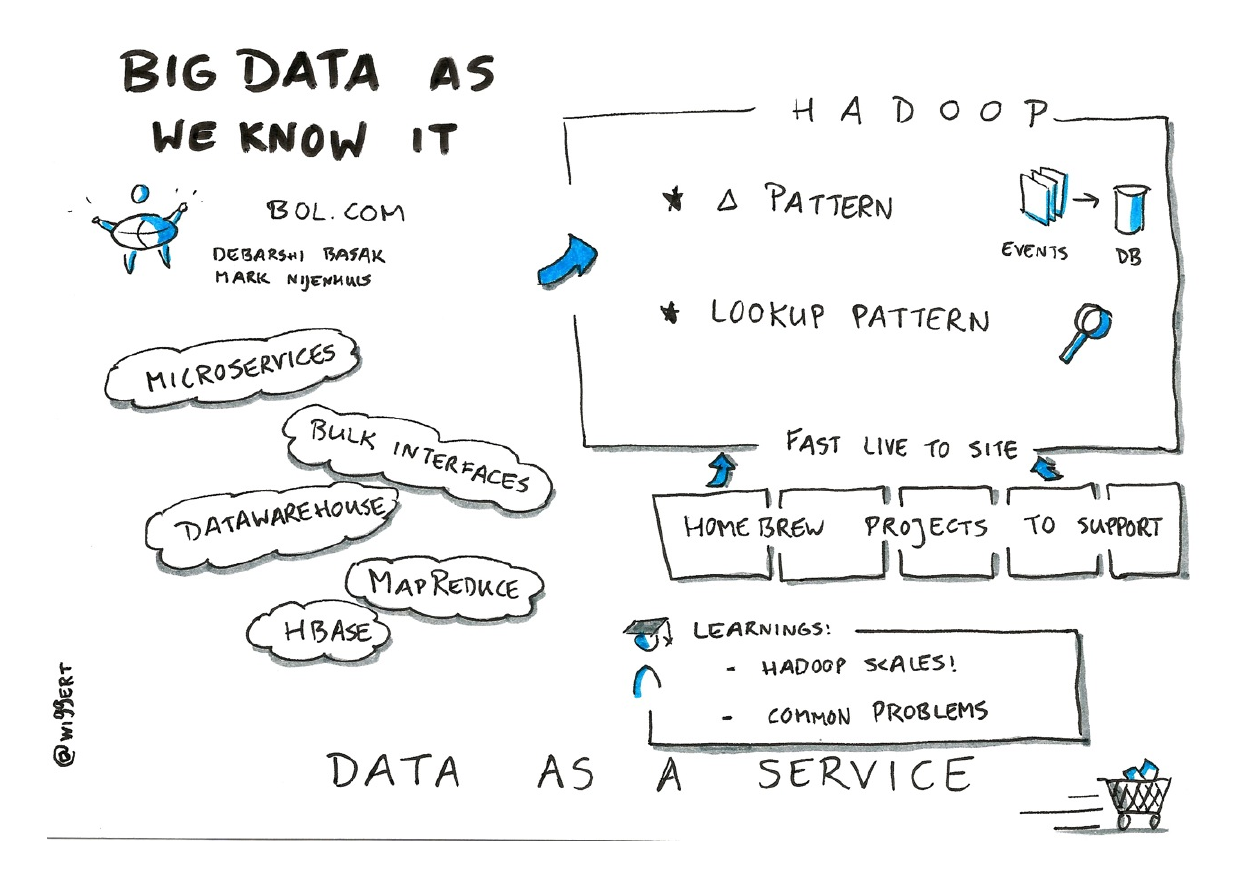 BIG DATA AS
WE KNOW IT
BOL.COM
DEBARSHI BASAK
MARK NIJENHUIS
MICROSERVICES
BULK INTERFACES
DATAWAREHOUSE
MAPREDUCE
HBASE
@WIGGERT
HADOOP
★ △ PATTERN
EVENTS → DB
★ LOOKUP PATTERN
FAST LIVE TO SITE
HOMEBREW PROJECTS TO SUPPORT
LEARNINGS:
- HADOOP SCALES!
- COMMON PROBLEMS
DATA AS A SERVICE